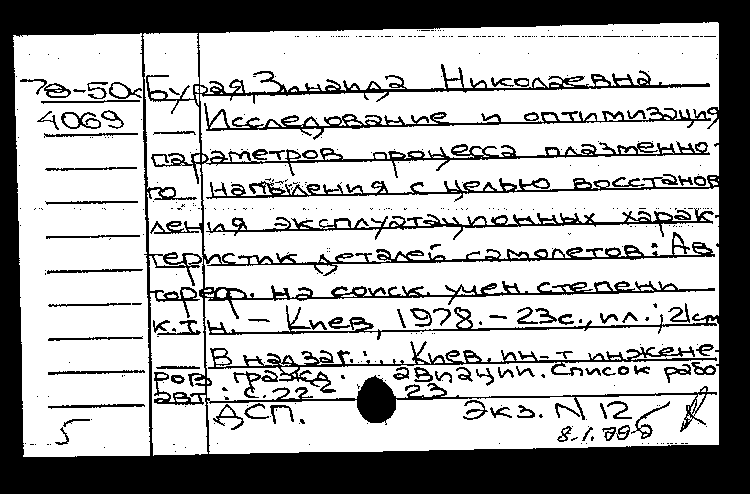 78-50к Бурая, Зинаида Николаевна.
4069 Исследование и оптимизация
параметров процесса плазменно-
го напыления с целью восстанов
ления эксплуатационных харак-
теристик деталей самолетов: Ав-
тореф. на соиск. учен. степени
к.т.н. – Киев, 1978. – 23с., ил.; 21см
В надзаг.: ...Киев. ин-т инжене-
ров гражд. авиации. Список рабо
авт.: с. 22-23
ДСП. Экз. N 12
5